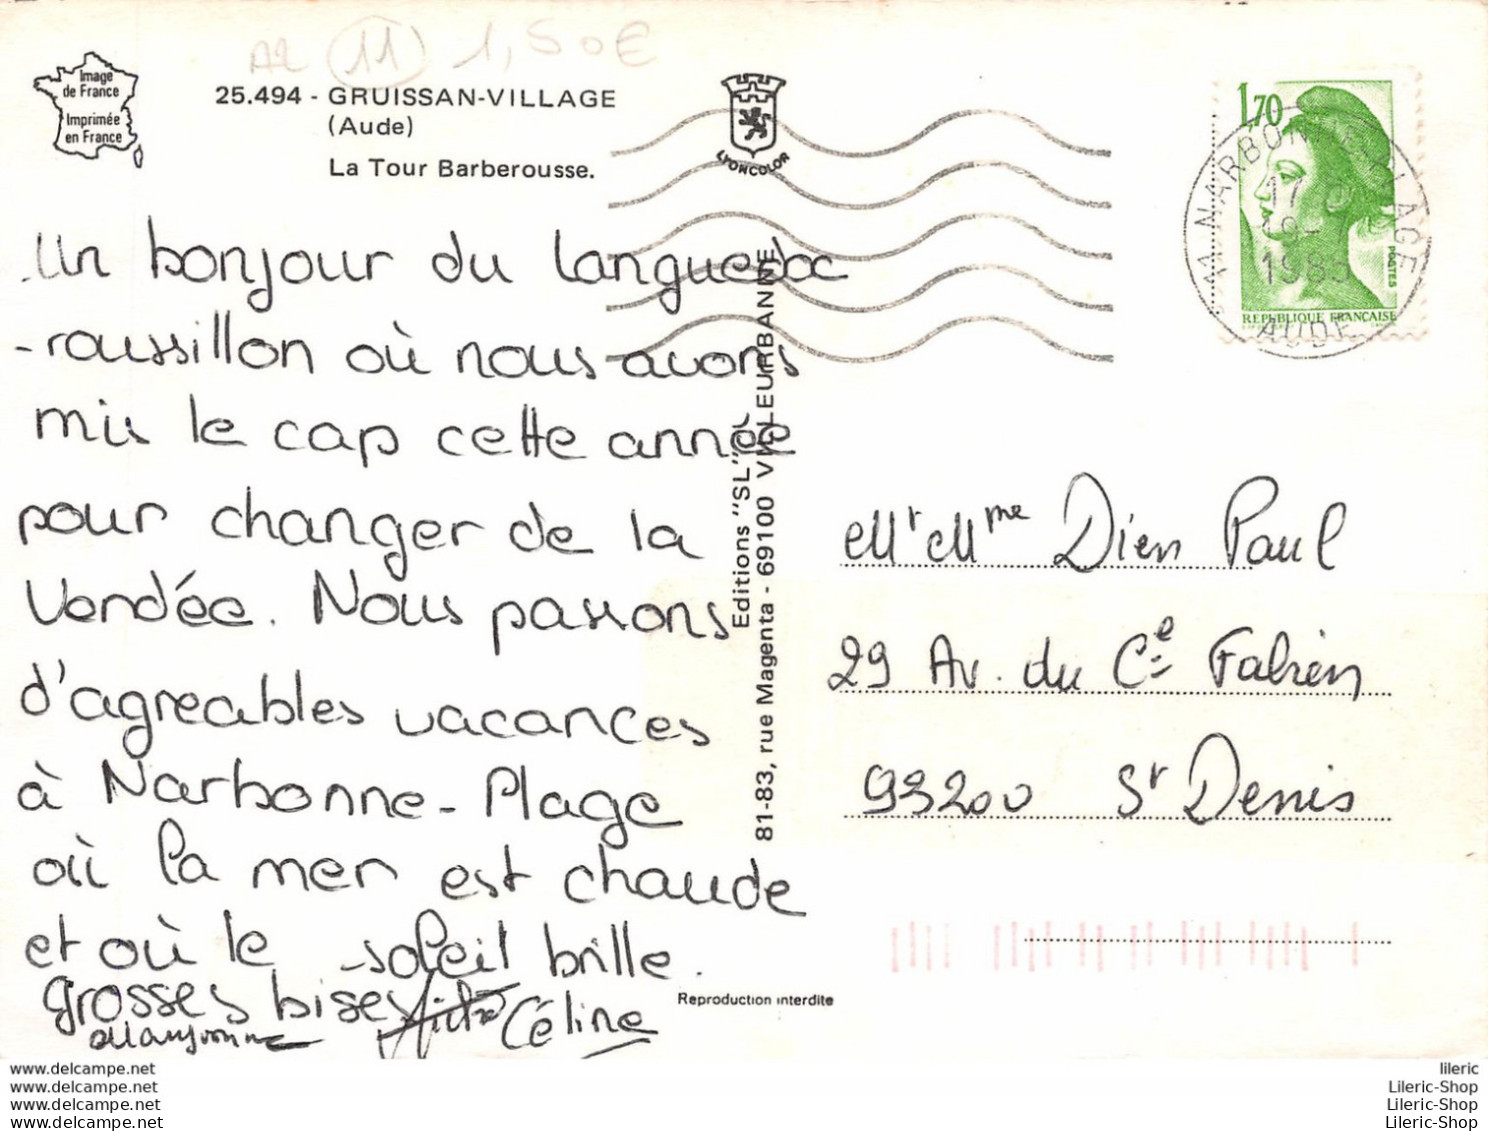 A2 (11) 1,50€
Image
de France
Imprimée
en France
25.494 - GRUISSAN-VILLAGE
(Aude)
La Tour Barberousse.
LYONCOLOR
1,70
POSTES
REPUBLIQUE FRANÇAISE
11 NARBONNE PLAGE
17
1985
AUDE
Un bonjour du Languedoc
-roussillon où nous avons
mis le cap cette année
pour changer de la
Vendée. Nous passons
d'agreables vacances
à Narbonne-Plage
où la mer est chaude
et où le soleil brille.
grosses bises
Maryvonne
Céline
Editions "SL"
81-83, rue Magenta - 69100 VILLEURBANNE
Mr Mme Dien Paul
29 Av. du Cel Fabien
93200 St Denis
Reproduction interdite
www.delcampe.net
www.delcampe.net
www.delcampe.net
www.delcampe.net
lileric
Lileric-Shop
Lileric-Shop
Lileric-Shop